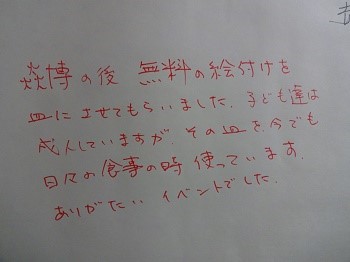 焱博の後 無料の絵付けを
皿にさせてもらいました。子ども達は
成人していますが、その皿を、今でも
日々の食事の時 使っています。
ありがたい イベントでした。